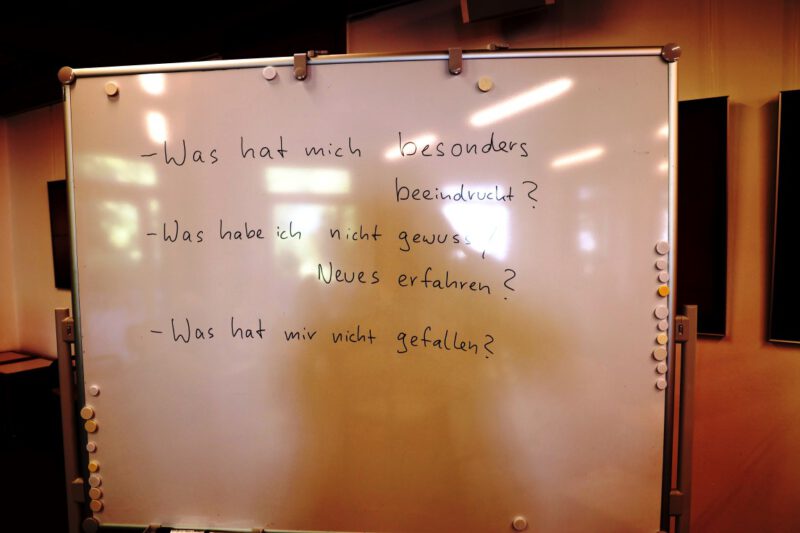 - Was hat mich besonders
beeindruckt?
- Was habe ich nicht
Neues erfahren?
- Was hat mir nicht gefallen?